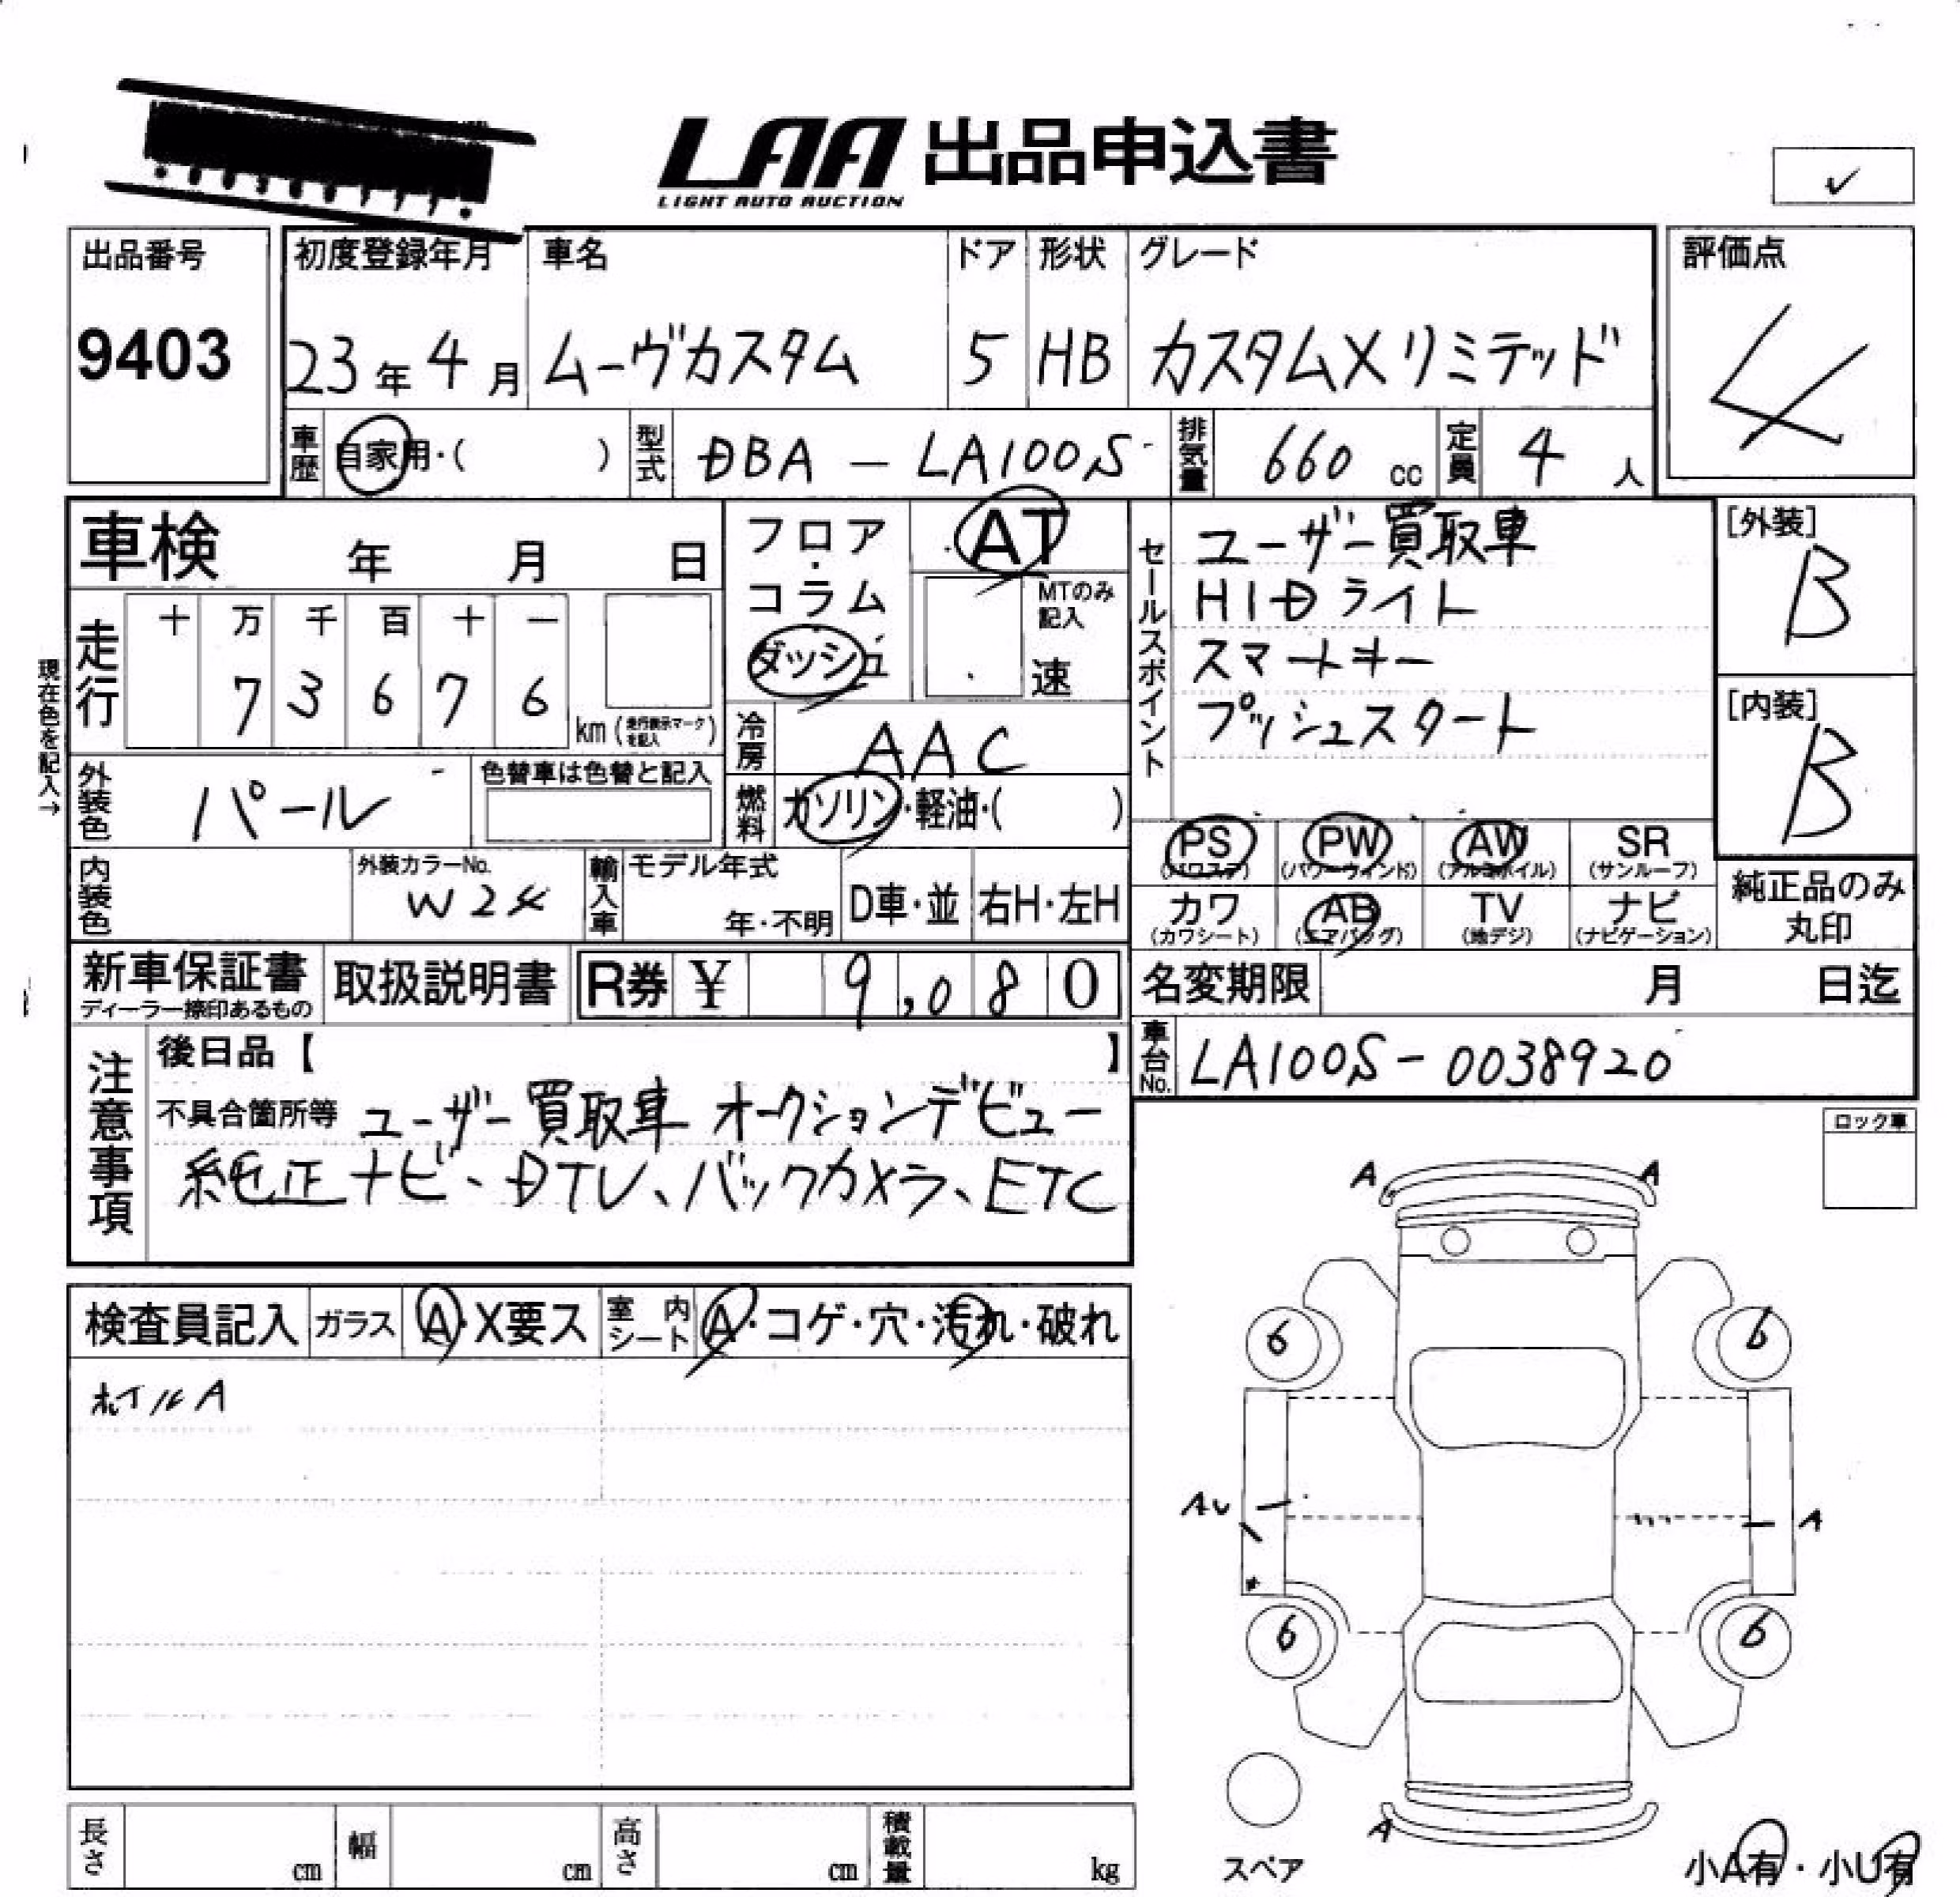 LAA 出品申込書
LIGHT AUTO AUCTION
✓
出品番号
9403
初度登録年月 車名 ドア 形状 グレード
23年4月 ムーヴカスタム 5 HB カスタムXリミテッド
評価点
4
車歴 自家用・( ) 型式 DBA - LA100S 排気量 660 cc 定員 4 人
車検 年 月 日
フロア・コラム ダッシュ
AT
MTのみ記入
速
走行 十 万 千 百 十 一
7 3 6 7 6
km(走行表示マークを記入)
現在色を記入→
冷房 AAC
セールスポイント
ユーザー買取車
HIDライト
スマートキー
プッシュスタート
[外装]
B
[内装]
B
外装色 パール 色替車は色替と記入
燃料 ガソリン・軽油・( )
内装色 外装カラーNo. W24
輸入車 モデル年式 年・不明 D車・並 右H・左H
PS (パワステ) PW (パワーウィンド) AW (アルミホイル) SR (サンルーフ)
カワ (カワシート) AB (エアバッグ) TV (地デジ) ナビ (ナビゲーション)
純正品のみ丸印
新車保証書 ディーラー捺印あるもの 取扱説明書 R券 ¥ 9,080
名変期限 月 日迄
車台No. LA100S-0038920
注意事項
後日品【 】
不具合箇所等 ユーザー買取車 オークションデビュー
純正ナビ、DTV、バックカメラ、ETC
ロック車
検査員記入 ガラス A・X要ス 室内シート A・コゲ・穴・汚れ・破れ
ホイルA
A A
6 6
AU A
6 6
A
スペア
小A有・小U有
長さ cm 幅 cm 高さ cm 積載量 kg